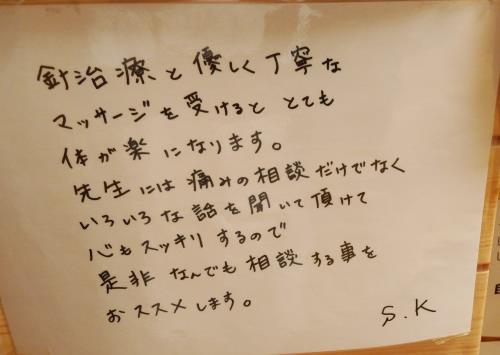 針治療と優しく丁寧な
マッサージを受けると とても
体が楽になります。
先生には痛みの相談だけでなく
いろいろな話を聞いて頂けて
心もスッキリするので
是非 なんでも相談する事を
おススメします。
S.K